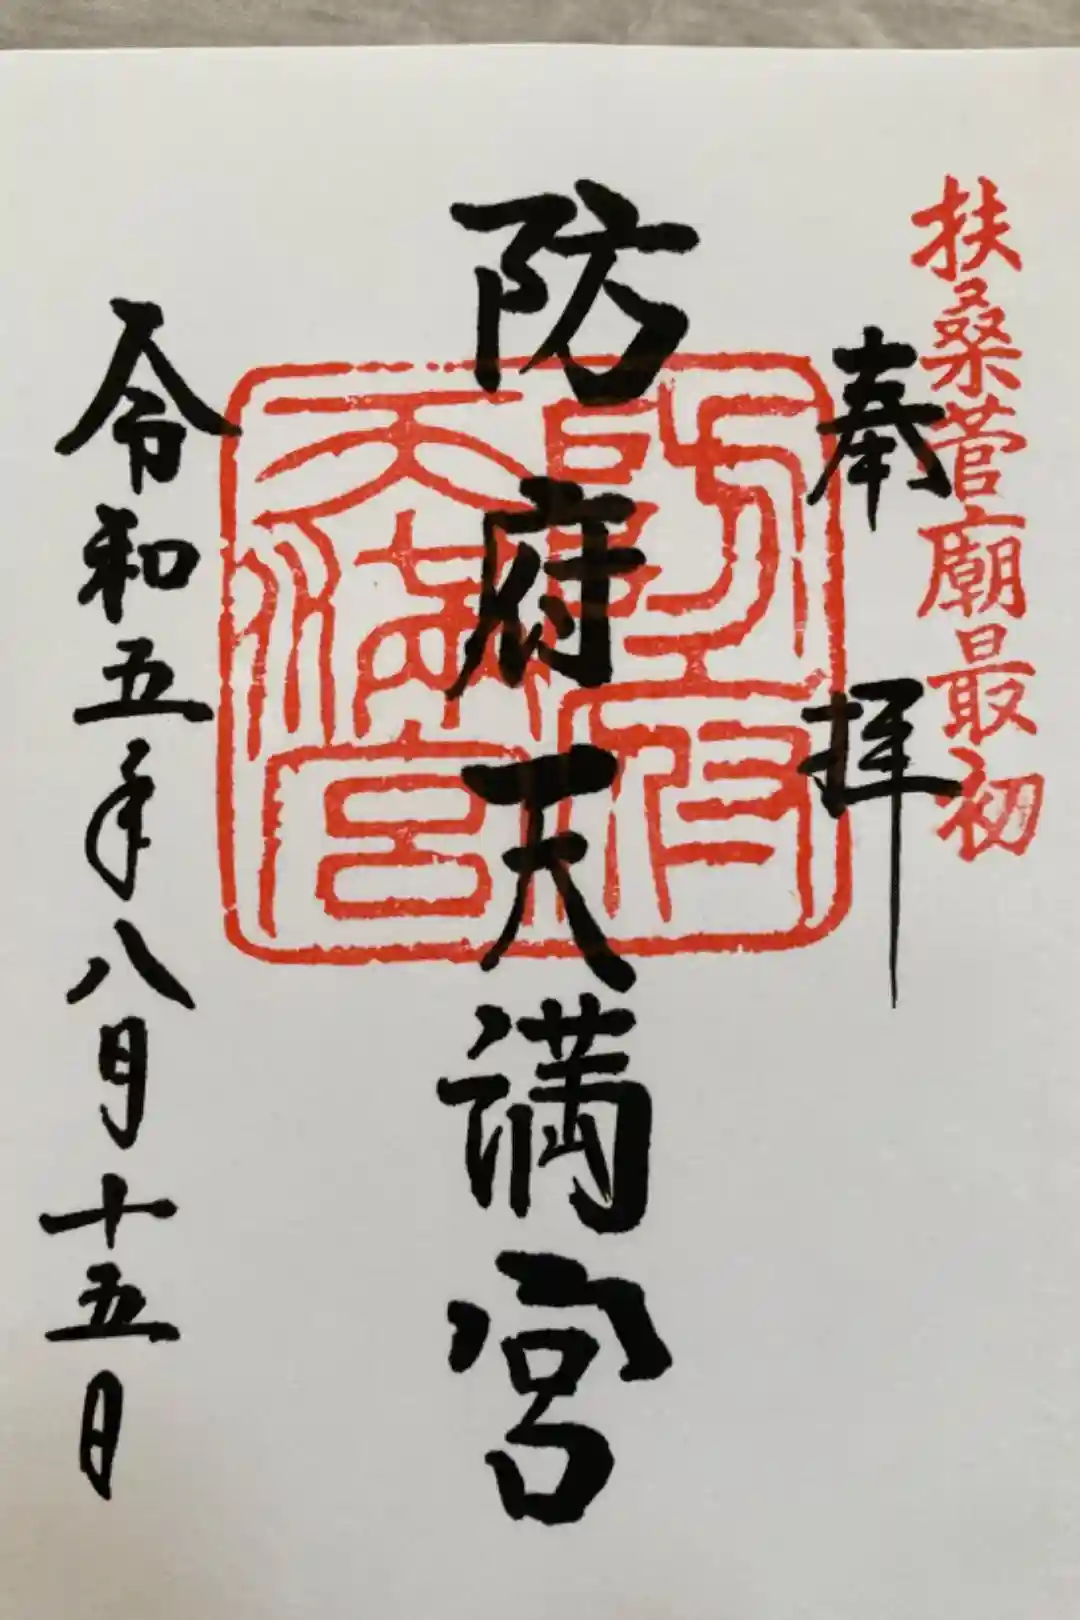 扶桑菅廟最初
奉拝
防府天満宮
令和五年八月十五日